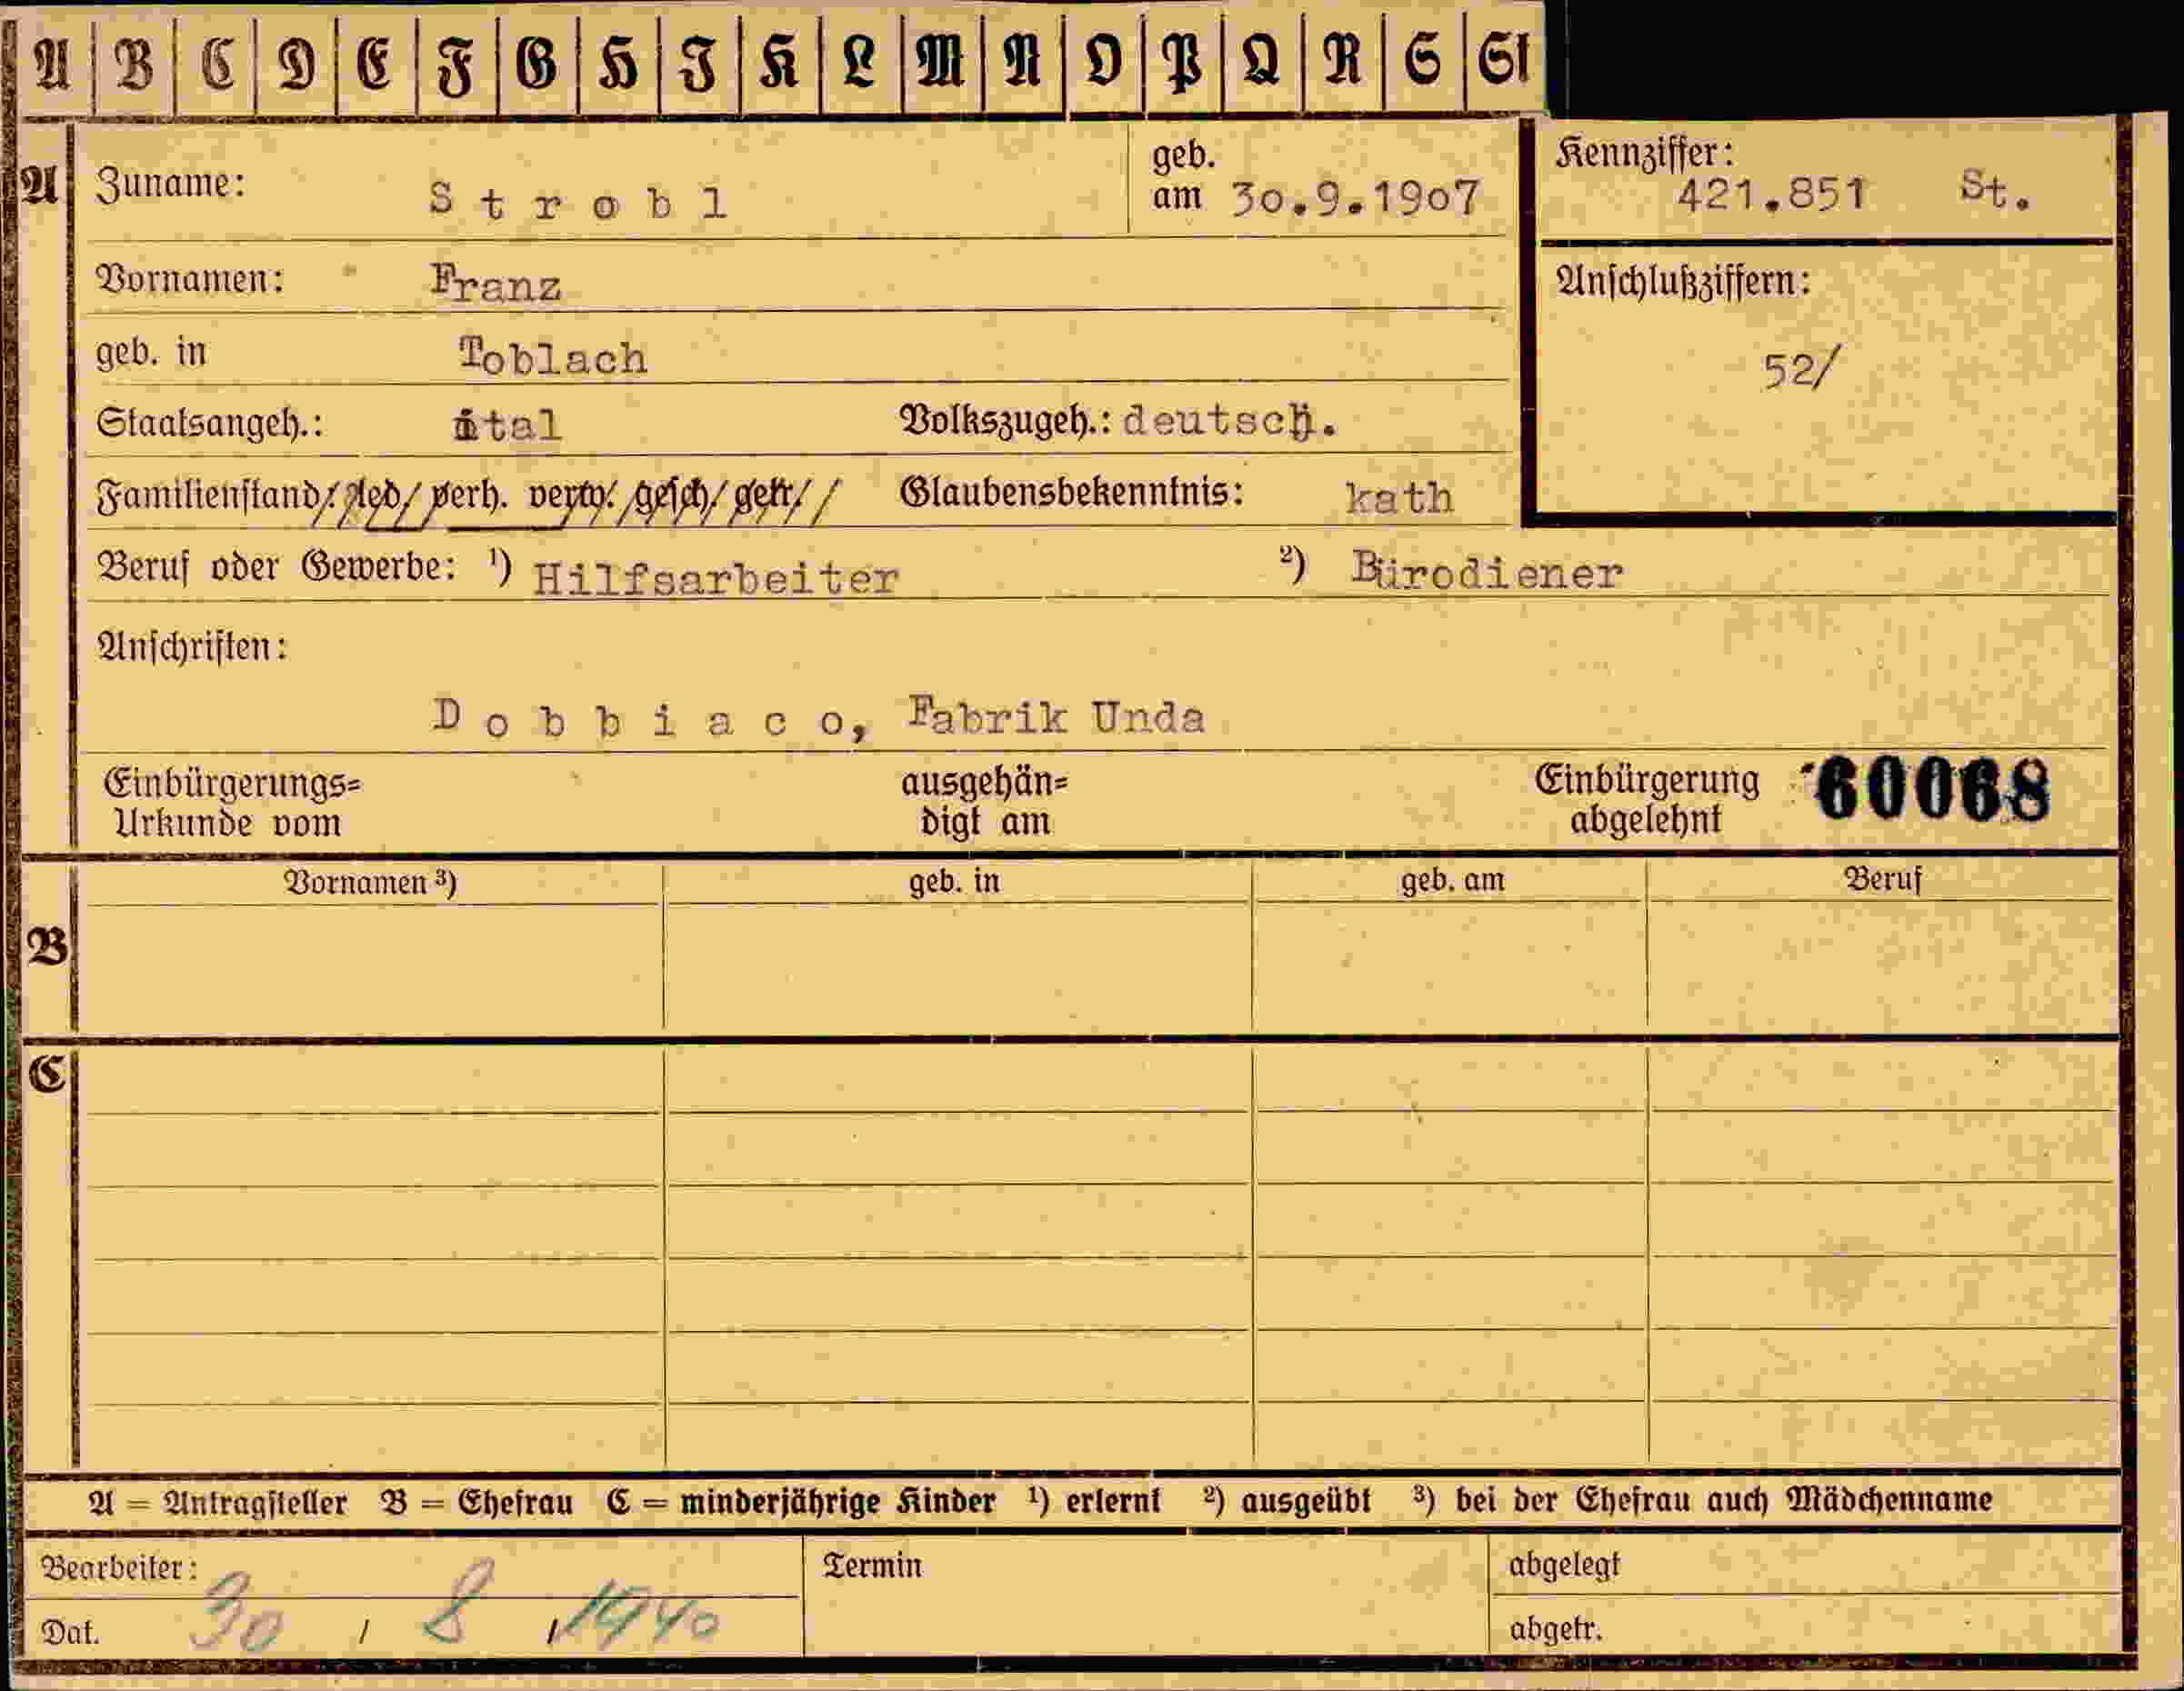 A B C D E F G H I K L M N O P Q R S St
A Zuname: Strobl geb. am 30.9.1907 Kennziffer: 421.851 St.
Vornamen: Franz Anschlußziffern:
geb. in Toblach 52/
Staatsangeh.: ital Volkszugeh.: deutsch.
Familienstand: led. verh. verw. gesch. getr. Glaubensbekenntnis: kath
Beruf oder Gewerbe: ¹) Hilfsarbeiter ²) Bürodiener
Anschriften:
Dobbiaco, Fabrik Unda
Einbürgerungs= ausgehän= Einbürgerung 60068
Urkunde vom digt am abgelehnt
Vornamen ³) geb. in geb. am Beruf
B
C
A = Antragsteller B = Ehefrau C = minderjährige Kinder ¹) erlernt ²) ausgeübt ³) bei der Ehefrau auch Mädchenname
Bearbeiter: Termin abgelegt
Dat. 30 / 8 / 1940 abgetr.